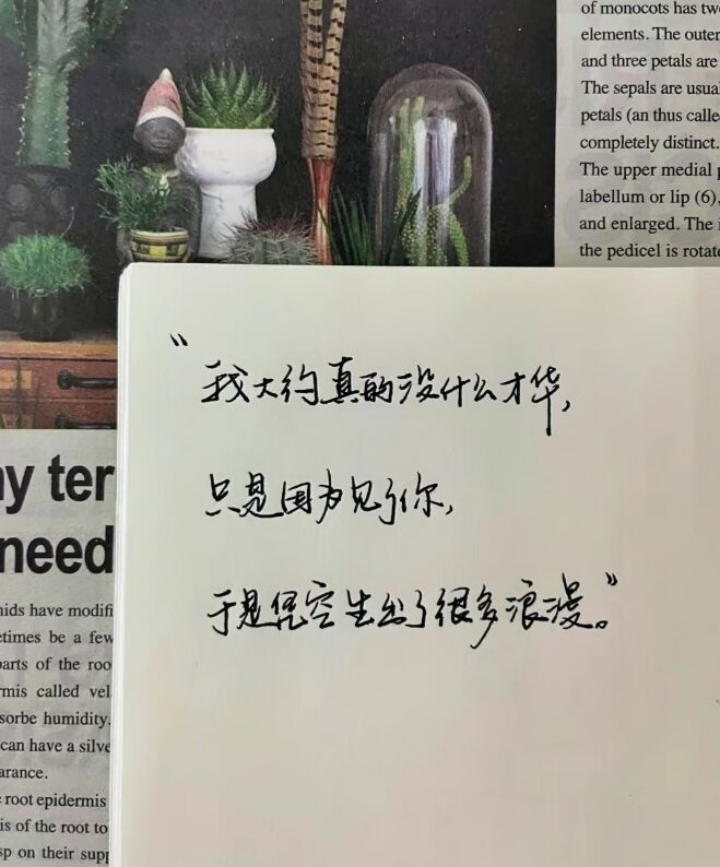 of monocots has two
elements. The outer
and three petals are
The sepals are usua
petals (an thus calle
completely distinct.
The upper medial p
labellum or lip (6),
and enlarged. The
the pedicel is rotate
“我大约真的没什么才华，
只是因为见了你，
于是凭空生出了很多浪漫。”
ny ter
need
hids have modifi
etimes be a few
parts of the roo
rmis called vel
sorbe humidity.
can have a silve
arance.
root epidermis
is of the root to
sp on their supp